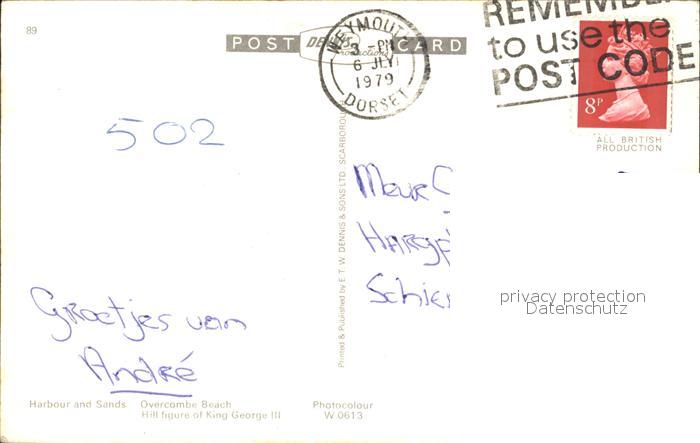 89
POST CARD
DENNIS
Productions
WEYMOUTH
3 - PM
6 JLY
1979
DORSET
REMEMBER
to use the
POST CODE
8P
ALL BRITISH
PRODUCTION
502
Groetjes van
André
Printed & Published by E. T. W. DENNIS & SONS LTD. SCARBOROUGH
privacy protection
Datenschutz
Harbour and Sands Overcombe Beach
Hill figure of King George III
Photocolour
W.0613